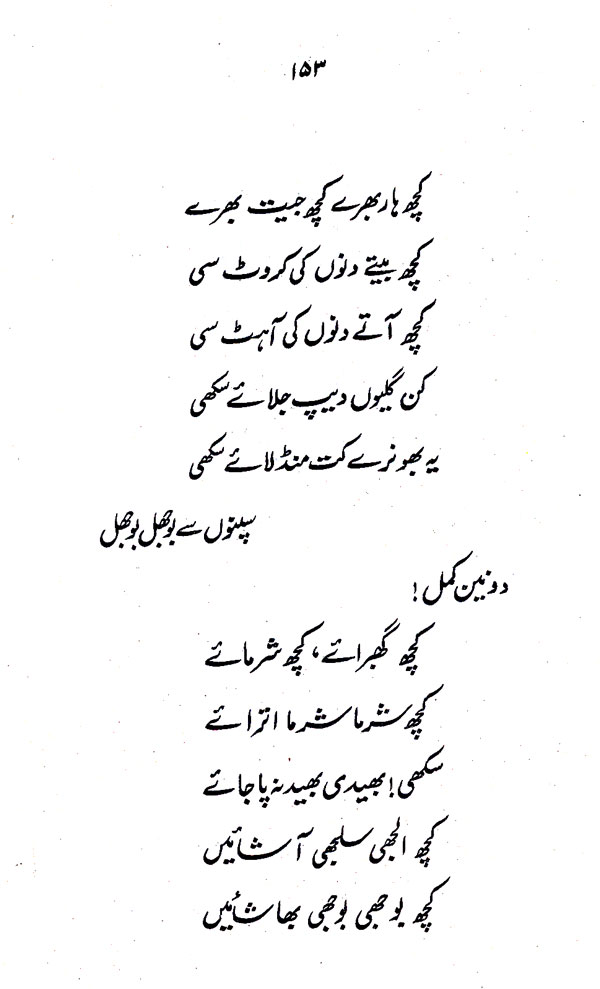 ۱۵۳
کچھ ہار بھرے کچھ جیت بھرے
کچھ بیتے دنوں کی کروٹ سی
کچھ آتے دنوں کی آہٹ سی
کن گلیوں دیپ جلائے سکھی
یہ بھونرے کت منڈلائے سکھی
سپنوں سے بوجھل بوجھل
دو نین کمل!
کچھ گھبرائے، کچھ شرمائے
کچھ شرما شرما اترائے
سکھی! بھیدی بھید نہ پا جائے
کچھ الجھی سلجھی آشائیں
کچھ بوجھی بوجھی بھاشائیں